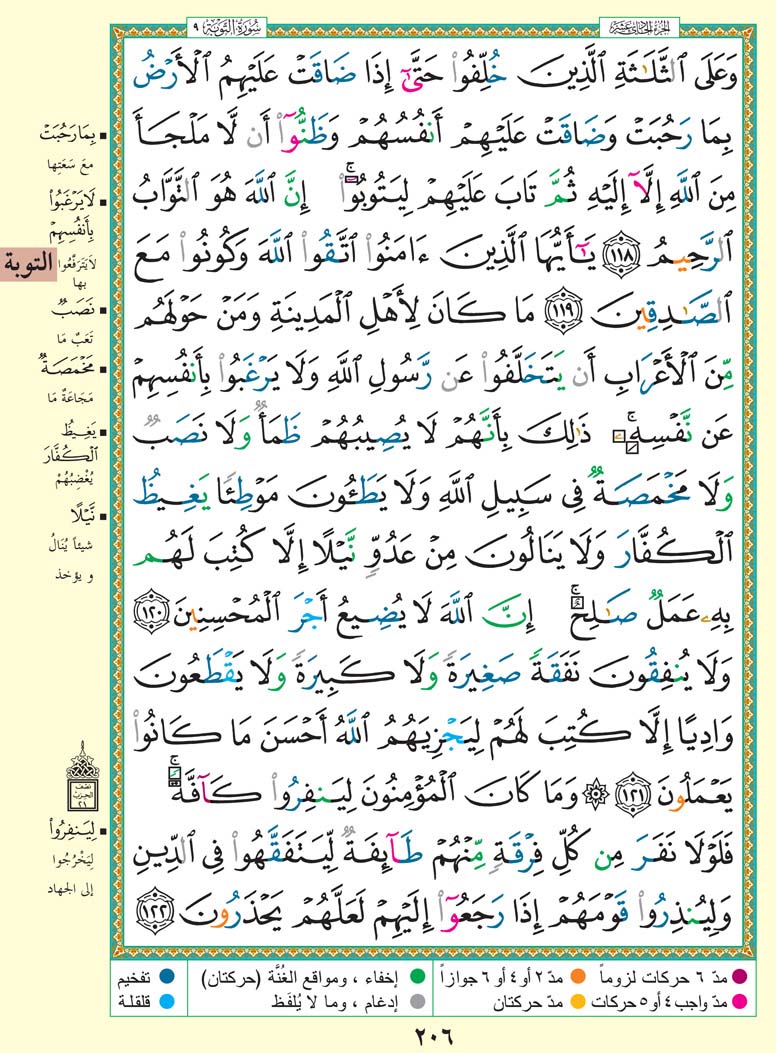 سُورَةُ التَّوْبَةِ ٩
الجُزْءُ الحَادِي عَشَرَ
وَعَلَى ٱلثَّلَـٰثَةِ ٱلَّذِينَ خُلِّفُوا۟ حَتَّىٰٓ إِذَا ضَاقَتْ عَلَيْهِمُ ٱلْأَرْضُ
بِمَا رَحُبَتْ وَضَاقَتْ عَلَيْهِمْ أَنفُسُهُمْ وَظَنُّوٓا۟ أَن لَّا مَلْجَأَ
مِنَ ٱللَّهِ إِلَّآ إِلَيْهِ ثُمَّ تَابَ عَلَيْهِمْ لِيَتُوبُوٓا۟ ۚ إِنَّ ٱللَّهَ هُوَ ٱلتَّوَّابُ
ٱلرَّحِيمُ ١١٨ يَـٰٓأَيُّهَا ٱلَّذِينَ ءَامَنُوا۟ ٱتَّقُوا۟ ٱللَّهَ وَكُونُوا۟ مَعَ
ٱلصَّـٰدِقِينَ ١١٩ مَا كَانَ لِأَهْلِ ٱلْمَدِينَةِ وَمَنْ حَوْلَهُم
مِّنَ ٱلْأَعْرَابِ أَن يَتَخَلَّفُوا۟ عَن رَّسُولِ ٱللَّهِ وَلَا يَرْغَبُوا۟ بِأَنفُسِهِمْ
عَن نَّفْسِهِۦ ۚ ذَٰلِكَ بِأَنَّهُمْ لَا يُصِيبُهُمْ ظَمَأٌ وَلَا نَصَبٌ
وَلَا مَخْمَصَةٌ فِى سَبِيلِ ٱللَّهِ وَلَا يَطَـُٔونَ مَوْطِئًا يَغِيظُ
ٱلْكُفَّارَ وَلَا يَنَالُونَ مِنْ عَدُوٍّ نَّيْلًا إِلَّا كُتِبَ لَهُم
بِهِۦ عَمَلٌ صَـٰلِحٌ ۚ إِنَّ ٱللَّهَ لَا يُضِيعُ أَجْرَ ٱلْمُحْسِنِينَ ١٢٠
وَلَا يُنفِقُونَ نَفَقَةً صَغِيرَةً وَلَا كَبِيرَةً وَلَا يَقْطَعُونَ
وَادِيًا إِلَّا كُتِبَ لَهُمْ لِيَجْزِيَهُمُ ٱللَّهُ أَحْسَنَ مَا كَانُوا۟
يَعْمَلُونَ ١٢١ ۞ وَمَا كَانَ ٱلْمُؤْمِنُونَ لِيَنفِرُوا۟ كَآفَّةً ۚ
فَلَوْلَا نَفَرَ مِن كُلِّ فِرْقَةٍ مِّنْهُمْ طَآئِفَةٌ لِّيَتَفَقَّهُوا۟ فِى ٱلدِّينِ
وَلِيُنذِرُوا۟ قَوْمَهُمْ إِذَا رَجَعُوٓا۟ إِلَيْهِمْ لَعَلَّهُمْ يَحْذَرُونَ ١٢٢
بِمَا رَحُبَتْ
مَعَ سَعَتِها
لَا يَرْغَبُوا۟
بِأَنفُسِهِمْ
لَا يَتَرَفَّعُوا
بها
التوبة
نَصَبٌ
تَعَبٌ مَا
مَخْمَصَةٌ
مَجَاعَةٌ مَا
يَغِيظُ
ٱلْكُفَّارَ
يُغْضِبُهُمْ
نَّيْلًا
شيئاً يُنَالُ
و يؤخذ
نصف
الحزب
٢١
لِيَنفِرُوا۟
لِيَخْرُجُوا
إلى الجهاد
مدّ ٦ حركات لزوماً
مدّ ٢ أو ٤ أو ٦ جوازاً
إخفاء ، ومواقع الغُنَّة (حركتان)
تفخيم
مدّ واجب ٤ أو ٥ حركات
مدّ حركتان
إدغام ، وما لا يُلفَظ
قلقلة
٢٠٦